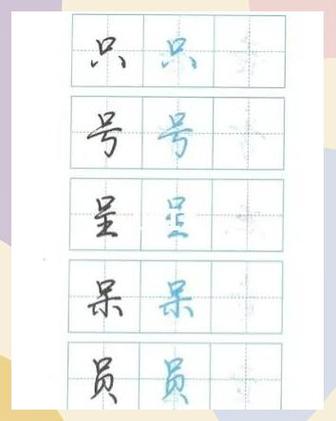 只 只
号 号
呈 呈
呆 呆
员 员